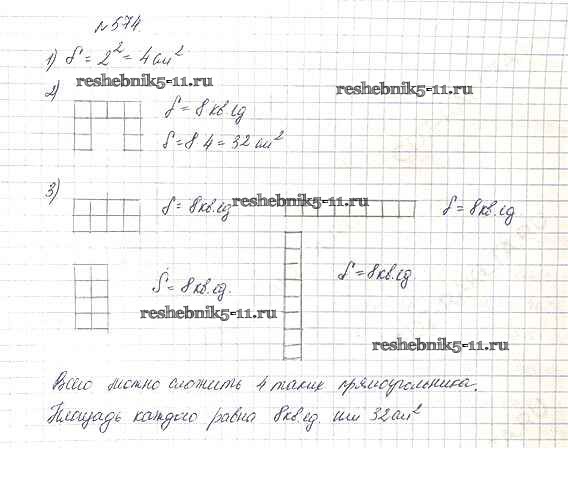 №574.
1) S = 2² = 4 см²
reshebnik5-11.ru
reshebnik5-11.ru
2)
S = 8 кв.ед
S = 8·4 = 32 см²
3)
S = 8 кв.ед
reshebnik5-11.ru
S = 8 кв.ед
S = 8 кв.ед.
S = 8 кв.ед.
reshebnik5-11.ru
reshebnik5-11.ru
Всего можно сложить 4 таких прямоугольника.
Площадь каждого равна 8 кв.ед. или 32 см²